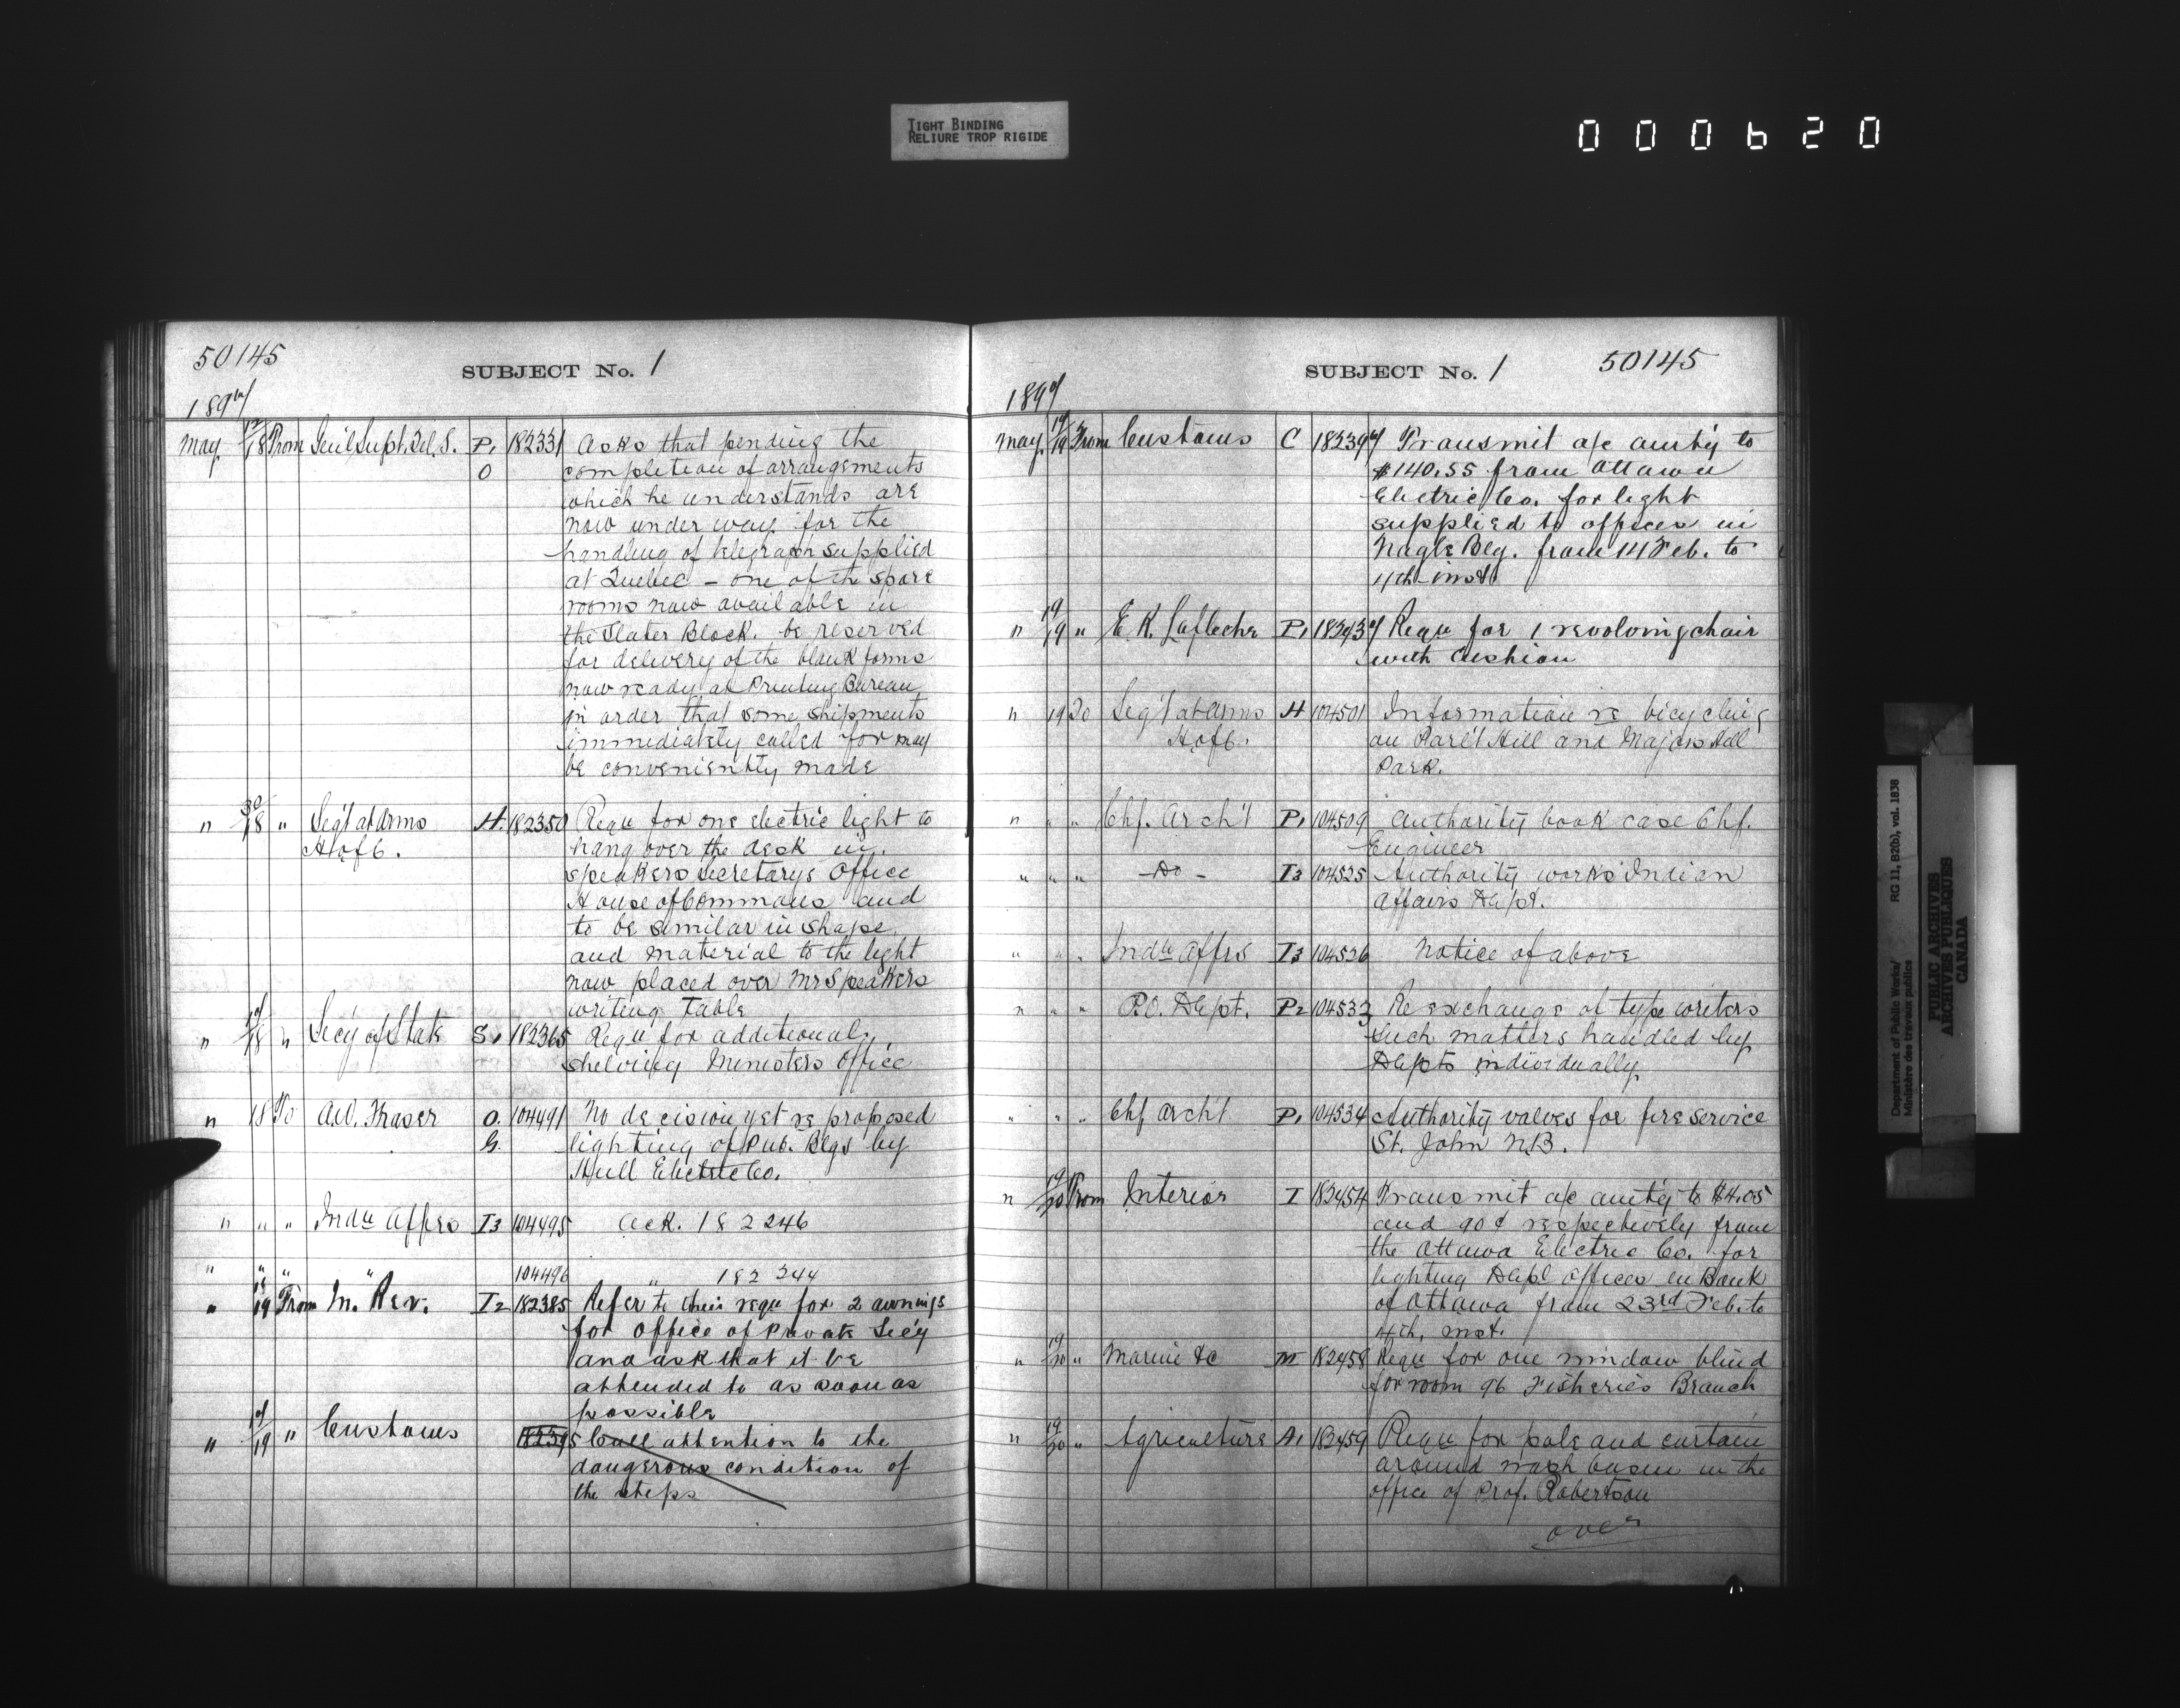 TIGHT BINDING
RELIURE TROP RIGIDE
000620
50145
SUBJECT No. 1
1897
May 17/18 From Gen'l Supt. Tel. S. P1 O 182331 Asks that pending the
completion of arrangements
which he understands are
now under way for the
handling of telegraph supplied
at Quebec – one of the spare
rooms now available in
the Slater Block. be reserved
for delivery of the blank forms
now ready at Printing Bureau
in order that some shipments
immediately called for may
be conveniently made
" /18 " Seg't at Arms H. 182350 Requ for one electric light to
H of C. hang over the desk in
speakers secretarys Office
House of Commons and
to be similar in shape
and material to the light
now placed over Mr Speakers
writing Table
" /18 " Sec'y of State S1 182365 Requ for additional
shelving Ministers Office
" 18 To A.W. Fraser O. 104491 No decision yet re proposed
G. lighting of Pub. Blgs by
Hull Electric Co.
" " " Indn Affrs I3 104495 Ack. 182246
" " " " 104496 " 182244
" 18/19 From In. Rev. I2 182385 Refer to their requ for 2 awnings
for Office of Private Sec'y
and ask that it be
attended to as soon as
possible
" /19 " Customs 182395 Call attention to the
dangerous condition of
the steps
SUBJECT No. 1 50145
1897
May 19/19 From Customs C 182397 Transmit a/c amt'g to
$140.55 from Ottawa
Electric Co. for light
supplied to offices in
Nagle Blg. from 14 Feb. to
4th inst
" 19/19 " E. R. Lafleche P1 182437 Requ for 1 revolving chair
with cushion
" 19 To Seg't at Arms H 104501 Information re bicycling
H of C. on Parl't Hill and Majors Hill
Park.
" " " Chf. Arch't P1 104509 Authority book case Chf.
Engineer
" " " – Do – I3 104525 Authority works Indian
Affairs Dept.
" " " Indn Affrs I3 104526 Notice of above
" " " P.O. Dept. P2 104533 Re exchange of type writers
such matters handled by
Depts individually.
" " " Chf Archt P1 104534 Authority valves for fire service
St. John N.B.
" 19/20 From Interior I 182454 Transmit a/c amt'g to $4.05
and 90¢ respectively from
the Ottawa Electric Co. for
lighting Dept Offices in Bank
of Ottawa from 23rd Feb. to
4th. inst.
" 19/20 " Marine &c M 182458 Requ for one window blind
for room 96 Fisheries Branch
" 19/20 " Agriculture A1 182459 Requ for pole and curtain
around wash basin in the
office of Prof. Robertson
over
Department of Public Works/
Ministère des travaux publics
RG 11, B2(b), vol. 1838
PUBLIC ARCHIVES
ARCHIVES PUBLIQUES
CANADA